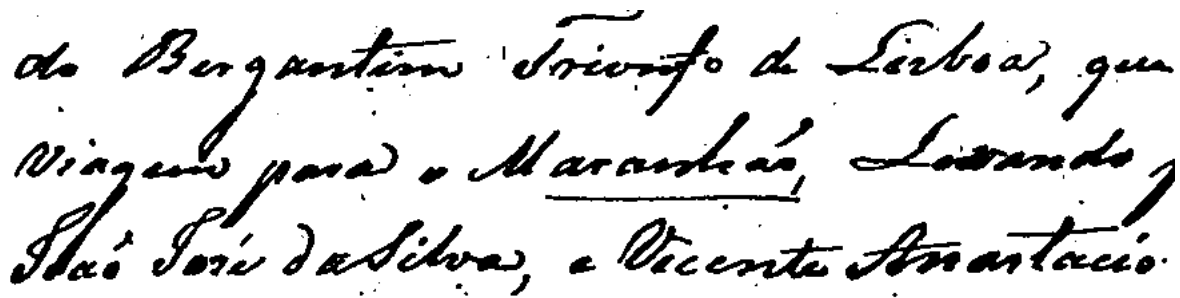 do Bergantim Triunfo de Lisboa, que
viagem para o Maranhão, Levando
João José da Silva, e Vicente Anastacio